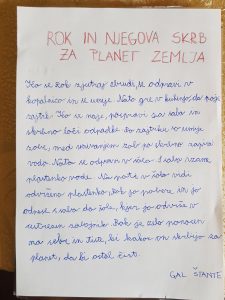 ROK IN NJEGOVA SKRB
ZA PLANET ZEMLJA
Ko se Rok zjutraj zbudi, se odpravi v
kopalnico in se umije. Nato gre v kuhinjo, da poje
zajtrk. Ko se naje, pospravi za sabo in
skrbno loči odpadke. Po zajtrku si umije
zobe, med umivanjem zob pa skrbno zapira
vodo. Nato se odpravi v šolo. S sabo vzame
plastenko vode. Na poti v šolo vidi
odvrženo plastenko, Rok jo pobere in jo
odnese s sabo do šole, kjer jo odvrže v
ustrezen zabojnik. Rok je zelo ponosen
na sebe in tiste, ki kakor on skrbijo za
planet, da bi ostal čist.
GAL ŠTANTE